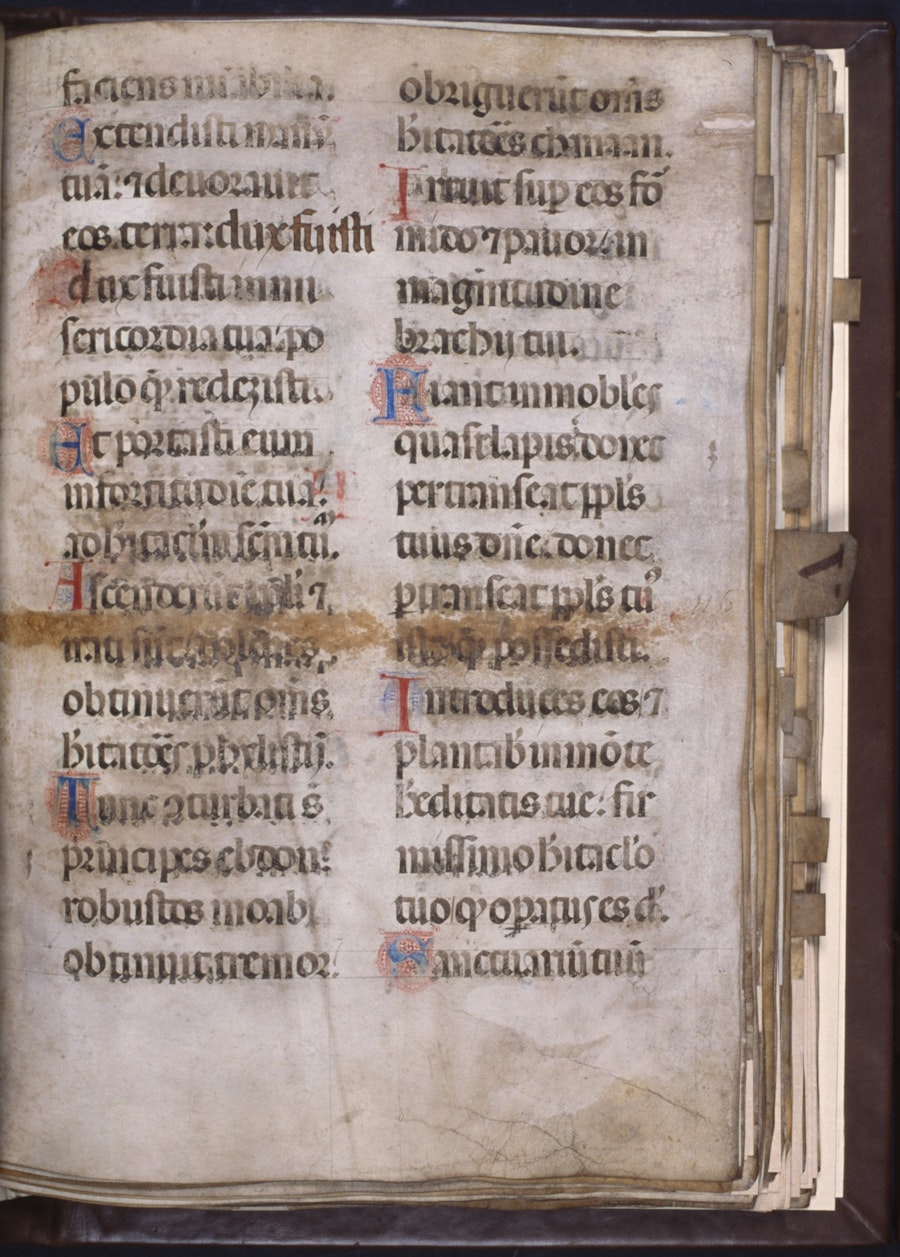 faciens mirabilia.
Extendisti manū
tuā: ⁊ deuorauit
eos terra: dux fuisti
dux fuisti in mi
sericordia tua: po
pulo q̄ꝫ redemisti.
Et portasti eum
in fortitudīe tua:
ad hitaclꝫm scm̄ tuū.
Ascenderūt ppl̄i ⁊
irati sūt: dolores
obtinuerūt om̄s
hitatōes phylistiī.
Tunc ꝯturbati s̄
principes edom:
robustos moab
obtinuit tremor:
obriguerūt om̄s
hitatōes chanaan.
Irruat suꝑ eos fō
mido ⁊ pauor: in
magnitudine
brachij tui.
Fiant inmobl̄es
quasi lapis donec
pertranseat ppl̄s
tuus dn̄e: donec
ꝑtranseat ppl̄s tuꝰ
iste quē possedisti.
Introduces eos ⁊
plantabꝭ in mōte
heditatis tue: fir
missimo hitacl̄o
tuo qď oꝑatus es d̄.
Sanctuariū tuū